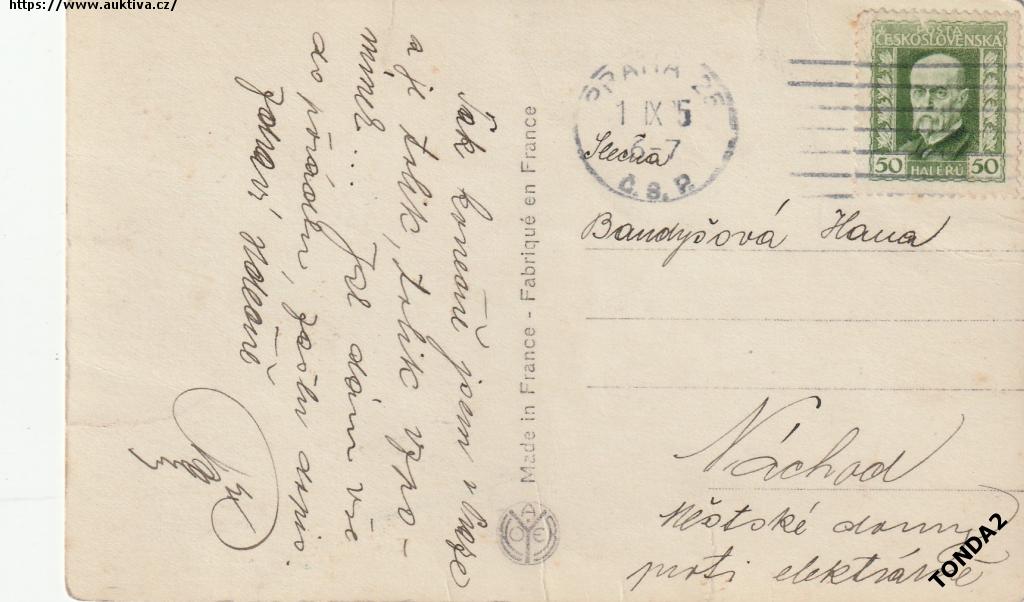 https://www.auktiva.cz/
Tak konečně jsem v Praze
a je tolik, tolik vzpo-
mínek... Jak dám vše
do pořádku, zašlu dopis.
Zdraví
Made in France - Fabriqué en France
PRAHA 25
1 IX 5
6-7
Č.S.P.
POŠTA
ČESKOSLOVENSKÁ
50 HALÉŘŮ 50
Slečna
Bandyšová Hana
Náchod
Městské domy
proti elektrárně
TONDA2